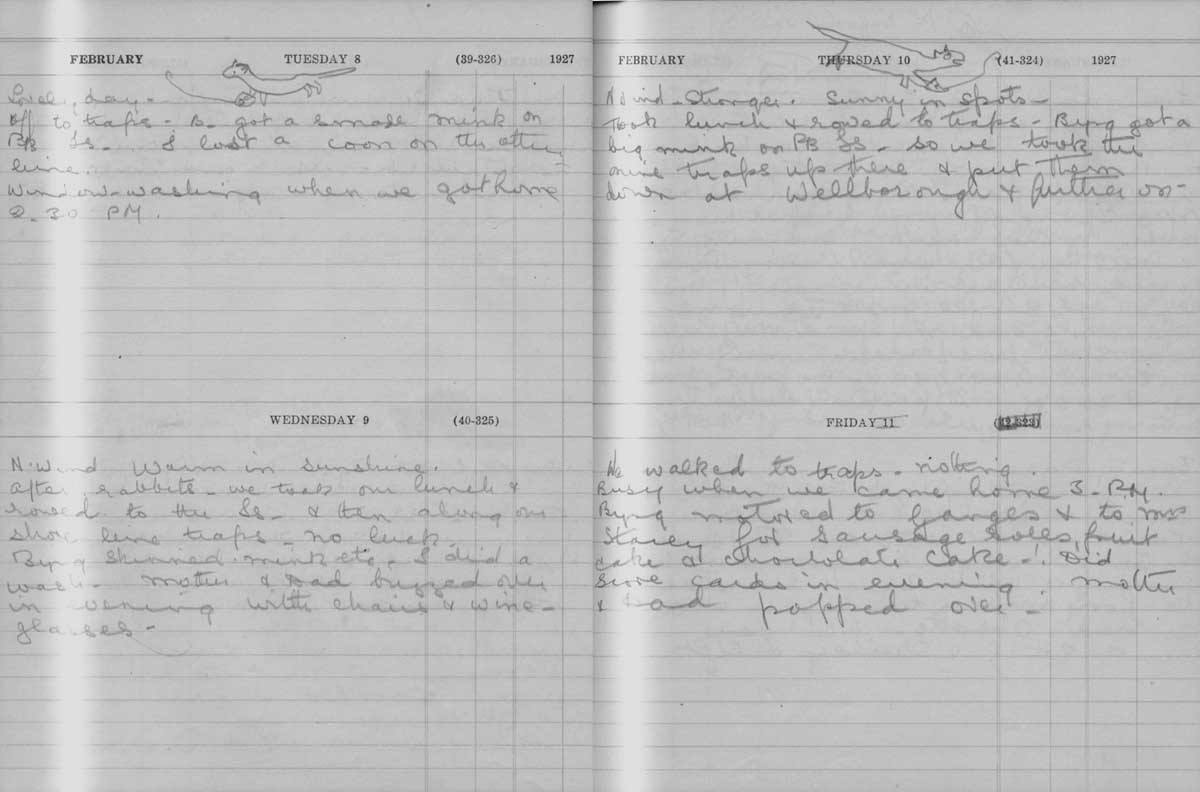 FEBRUARY TUESDAY 8 (39-326) 1927
Lovely day -
Off to traps - B. got a small mink on
PB Is - I lost a coon on the other
line.
Window-washing when we got home
2.30 PM.
WEDNESDAY 9 (40-325)
N. Wind Warm in sunshine.
After rabbits - we took our lunch &
rowed to the Is - & then along our
shore line traps - no luck -
Byng skinned mink etc - I did a
wash - Mother & Dad buzzed over
in evening with chairs & wine-
glasses -
FEBRUARY THURSDAY 10 (41-324) 1927
N. Wind - Stronger. Sunny in spots -
Took lunch & rowed to traps - Byng got a
big mink on PB Is - so we took the
nine traps up there & put them
down at Wellborough & further on -
FRIDAY 11
We walked to traps - nothing.
Busy when we came home 3 - PM.
Byng motored to Ganges & to Mrs
Stacey for sausage rolls, fruit
cake & chocolate cake - ! Did
score cards in evening. Mother
& Dad popped over -